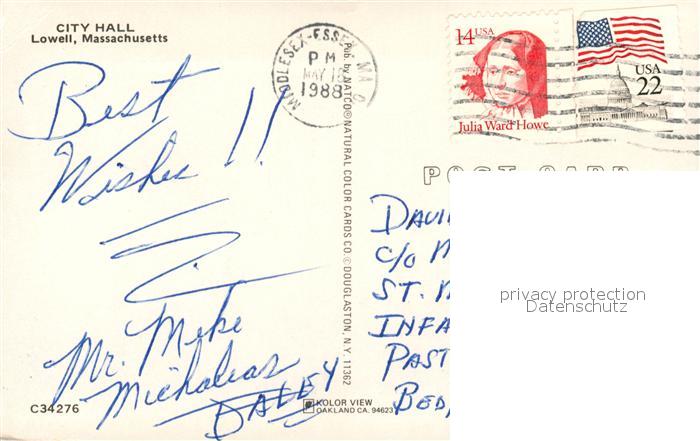 CITY HALL
Lowell, Massachusetts
Best
Wishes !!
Mr. Mike
C34276
Pub. by NATCO © NATURAL COLOR CARDS CO © DOUGLASTON, N.Y. 11362
KOLOR VIEW
OAKLAND CA. 94623
MIDDLESEX-ESSEX MA
PM
MAY
1988
14 USA
Julia Ward Howe
USA
22
POST CARD
DAVI
C/O M
ST.
INFA
PAST
BED,
privacy protection
Datenschutz